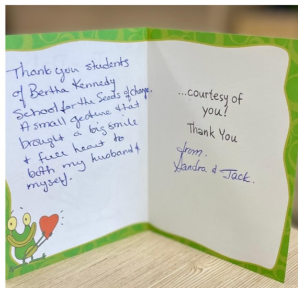 Thank you students
of Bertha Kennedy
School for the Seeds of change.
A small gesture that
brought a big smile
& full heart to
both my husband &
myself.
...courtesy of
you!
Thank You
from.
Sandra & Jack.